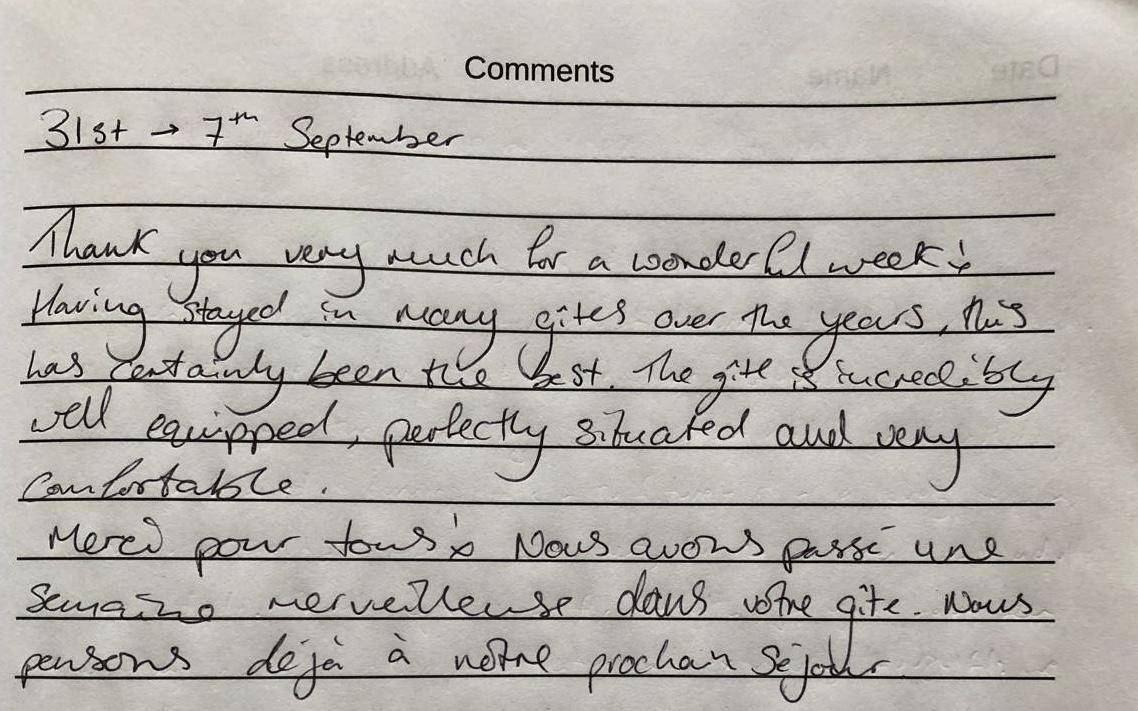 Comments
31st → 7th September
Thank you very much for a wonderful week!
Having stayed in many gîtes over the years, this
has certainly been the best. The gîte is incredibly
well equipped, perfectly situated and very
comfortable.
Merci pour tous! Nous avons passé une
semaine merveilleuse dans votre gîte. Nous
pensons déjà à nôtre prochain séjour.